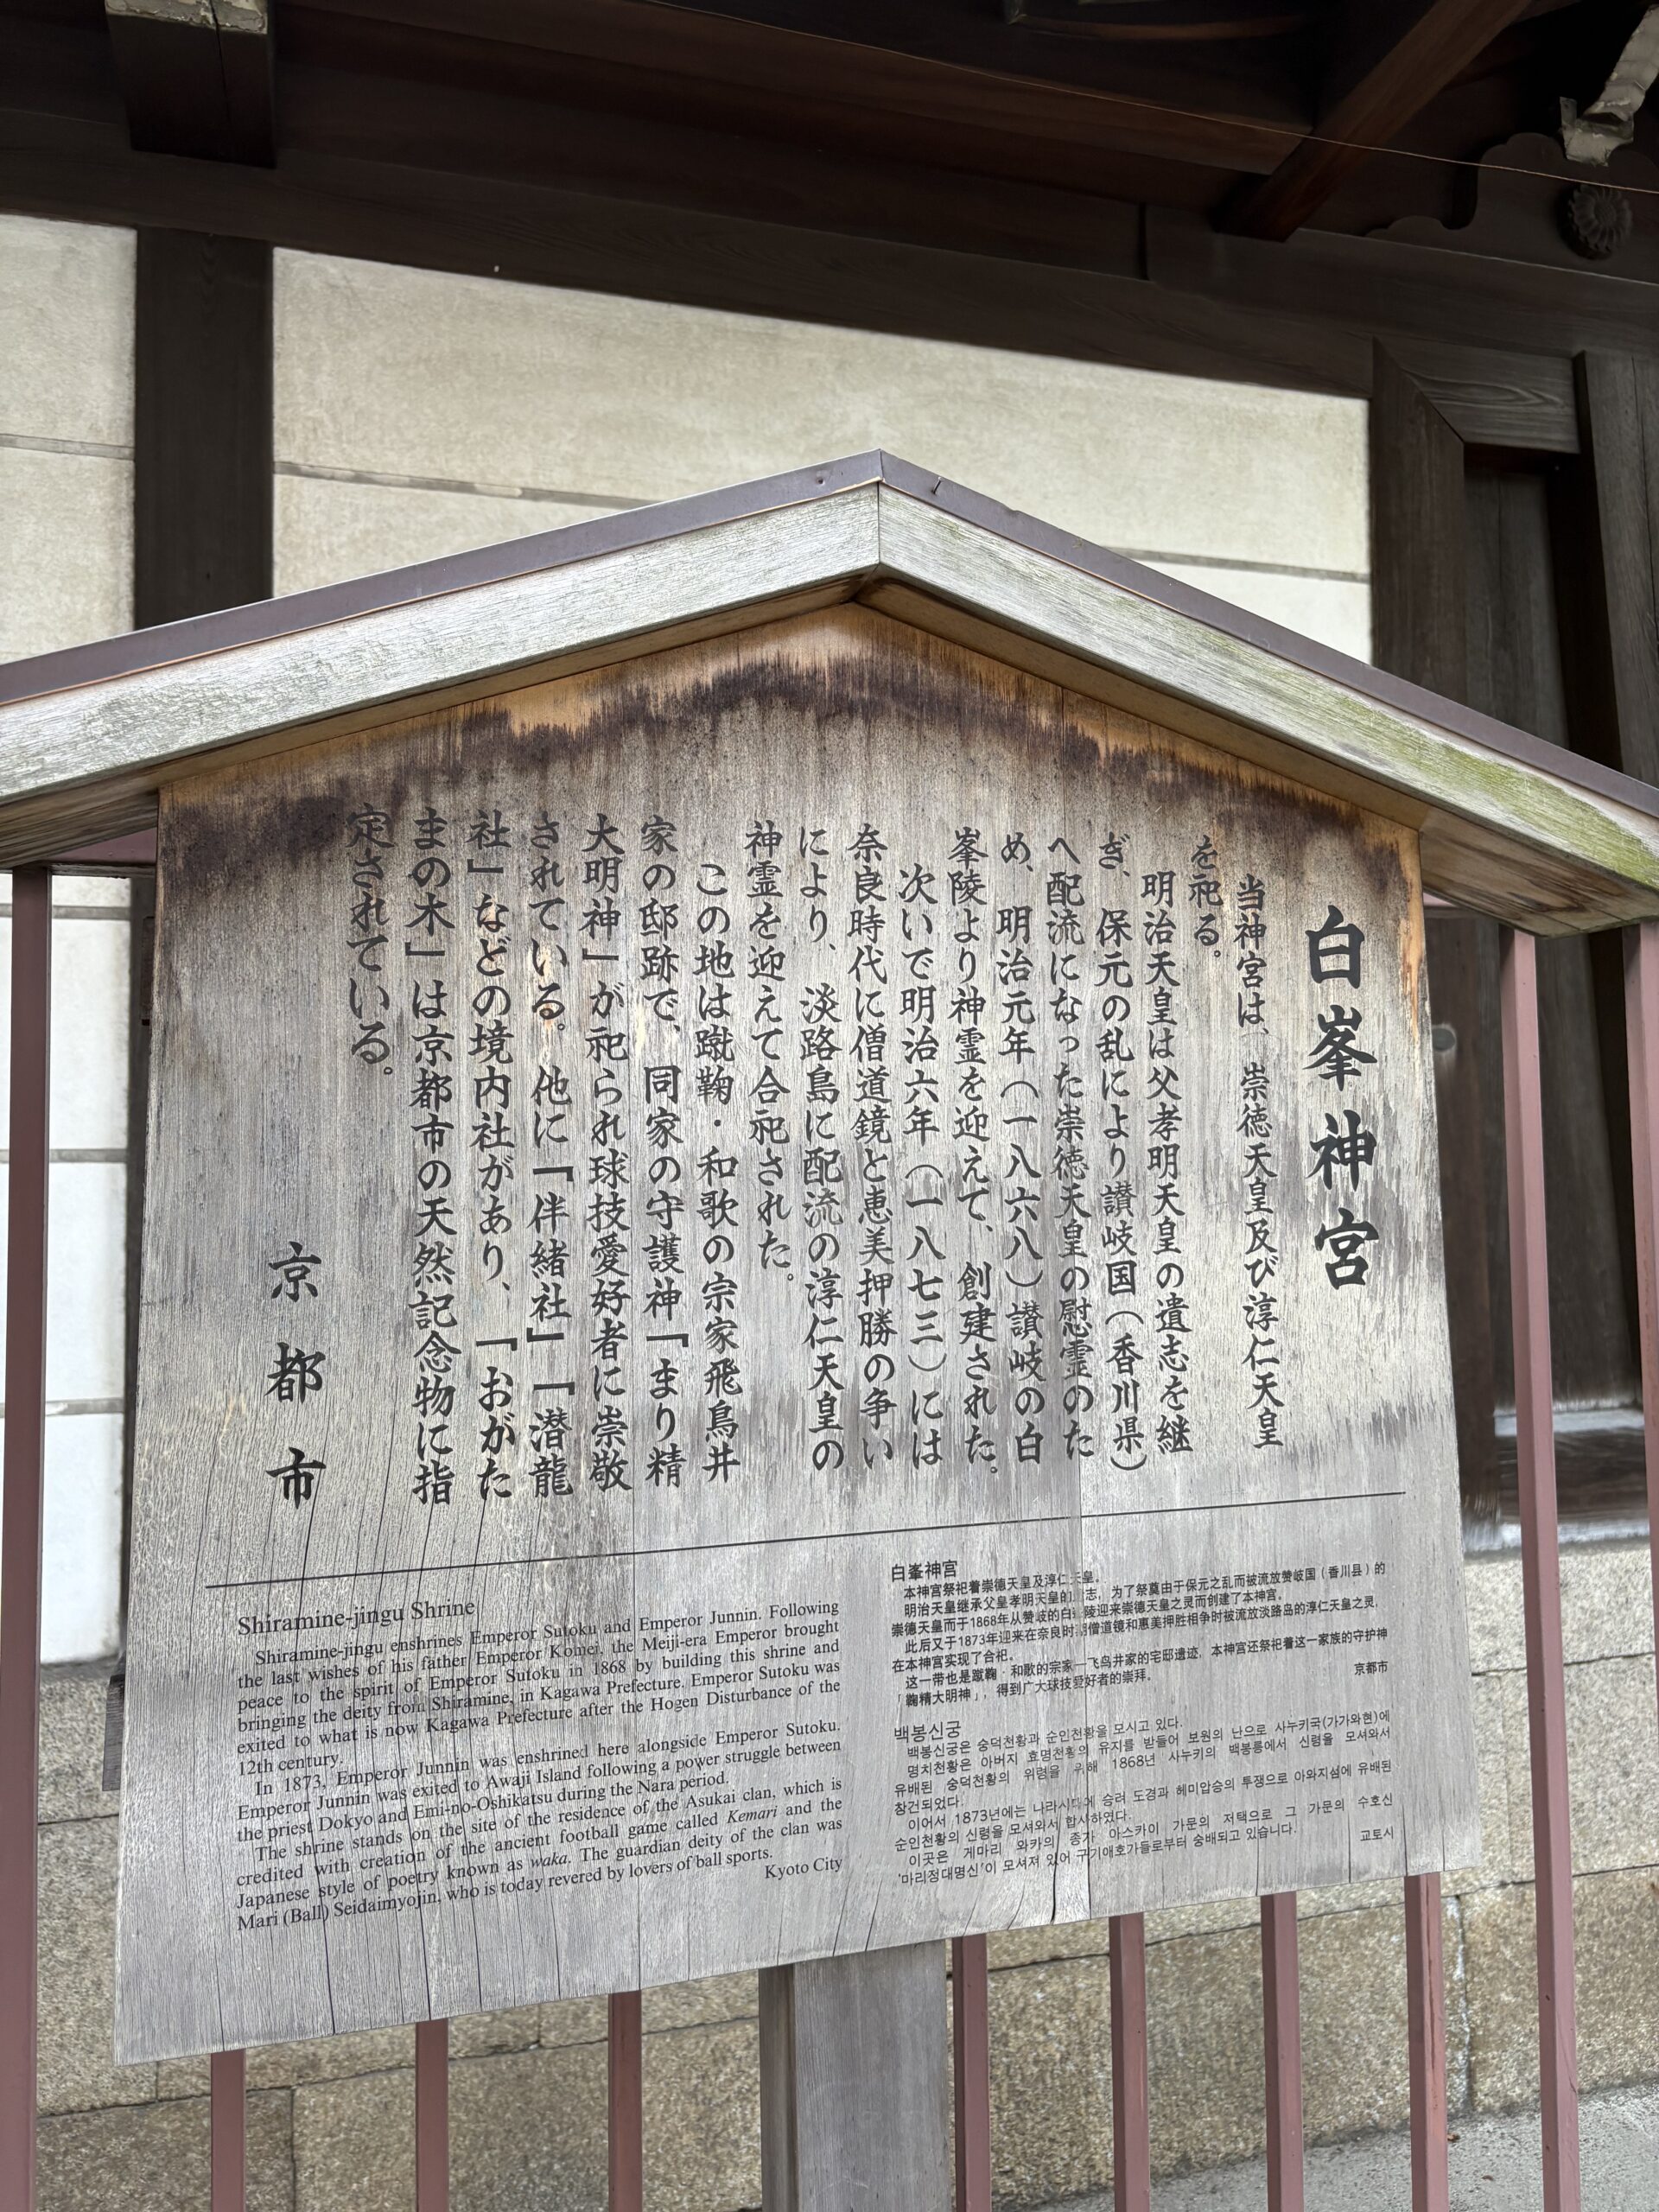 白峯神宮
当神宮は、崇徳天皇及び淳仁天皇
を祀る。
明治天皇は父孝明天皇の遺志を継
ぎ、保元の乱により讃岐国（香川県）
へ配流になった崇徳天皇の慰霊のた
め、明治元年（一八六八）讃岐の白
峯陵より神霊を迎えて、創建された。
次いで明治六年（一八七三）には
奈良時代に僧道鏡と恵美押勝の争い
により、淡路島に配流の淳仁天皇の
神霊を迎えて合祀された。
この地は蹴鞠・和歌の宗家飛鳥井
家の邸跡で、同家の守護神「まり精
大明神」が祀られ球技愛好者に崇敬
されている。他に「伴緒社」「潜龍
社」などの境内社があり、「おがた
まの木」は京都市の天然記念物に指
定されている。
京都市
Shiramine-jingu Shrine
Shiramine-jingu enshrines Emperor Sutoku and Emperor Junnin. Following
the last wishes of his father Emperor Komei, the Meiji-era Emperor brought
peace to the spirit of Emperor Sutoku in 1868 by building this shrine and
bringing the deity from Shiramine, in Kagawa Prefecture. Emperor Sutoku was
exited to what is now Kagawa Prefecture after the Hogen Disturbance of the
12th century.
In 1873, Emperor Junnin was enshrined here alongside Emperor Sutoku.
Emperor Junnin was exited to Awaji Island following a power struggle between
the priest Dokyo and Emi-no-Oshikatsu during the Nara period.
The shrine stands on the site of the residence of the Asukai clan, which is
credited with creation of the ancient football game called Kemari and the
Japanese style of poetry known as waka. The guardian deity of the clan was
Mari (Ball) Seidaimyojin, who is today revered by lovers of ball sports.
Kyoto City
白峯神宫
本神宫祭祀着崇德天皇及淳仁天皇。
明治天皇继承父皇孝明天皇的志，为了祭奠由于保元之乱而被流放赞岐国（香川县）的
崇德天皇而于1868年从赞岐的白陵迎来崇德天皇之灵而创建了本神宫。
此后又于1873年迎来在奈良时僧道镜和惠美押胜相争时被流放淡路岛的淳仁天皇之灵，
在本神宫实现了合祀。
这一带也是蹴鞠·和歌的宗家—飞鸟井家的宅邸遗迹，本神宫还祭祀着这一家族的守护神
「鞠精大明神」，得到广大球技爱好者的崇拜。
京都市
백봉신궁
백봉신궁은 숭덕천황과 순인천황을 모시고 있다.
명치천황은 아버지 효명천황의 유지를 받들어 보원의 난으로 사누키국(가가와현)에
유배된 숭덕천황의 위령을 위해 1868년 사누키의 백봉릉에서 신령을 모셔와서
창건되었다.
이어서 1873년에는 나라시대에 승려 도경과 헤미압승의 투쟁으로 아와지섬에 유배된
순인천황의 신령을 모셔와서 합사하였다.
이곳은 게마리 와카의 종가 아스카이 가문의 저택으로 그 가문의 수호신
'마리정대명신'이 모셔져 있어 구기애호가들로부터 숭배되고 있습니다.
교토시